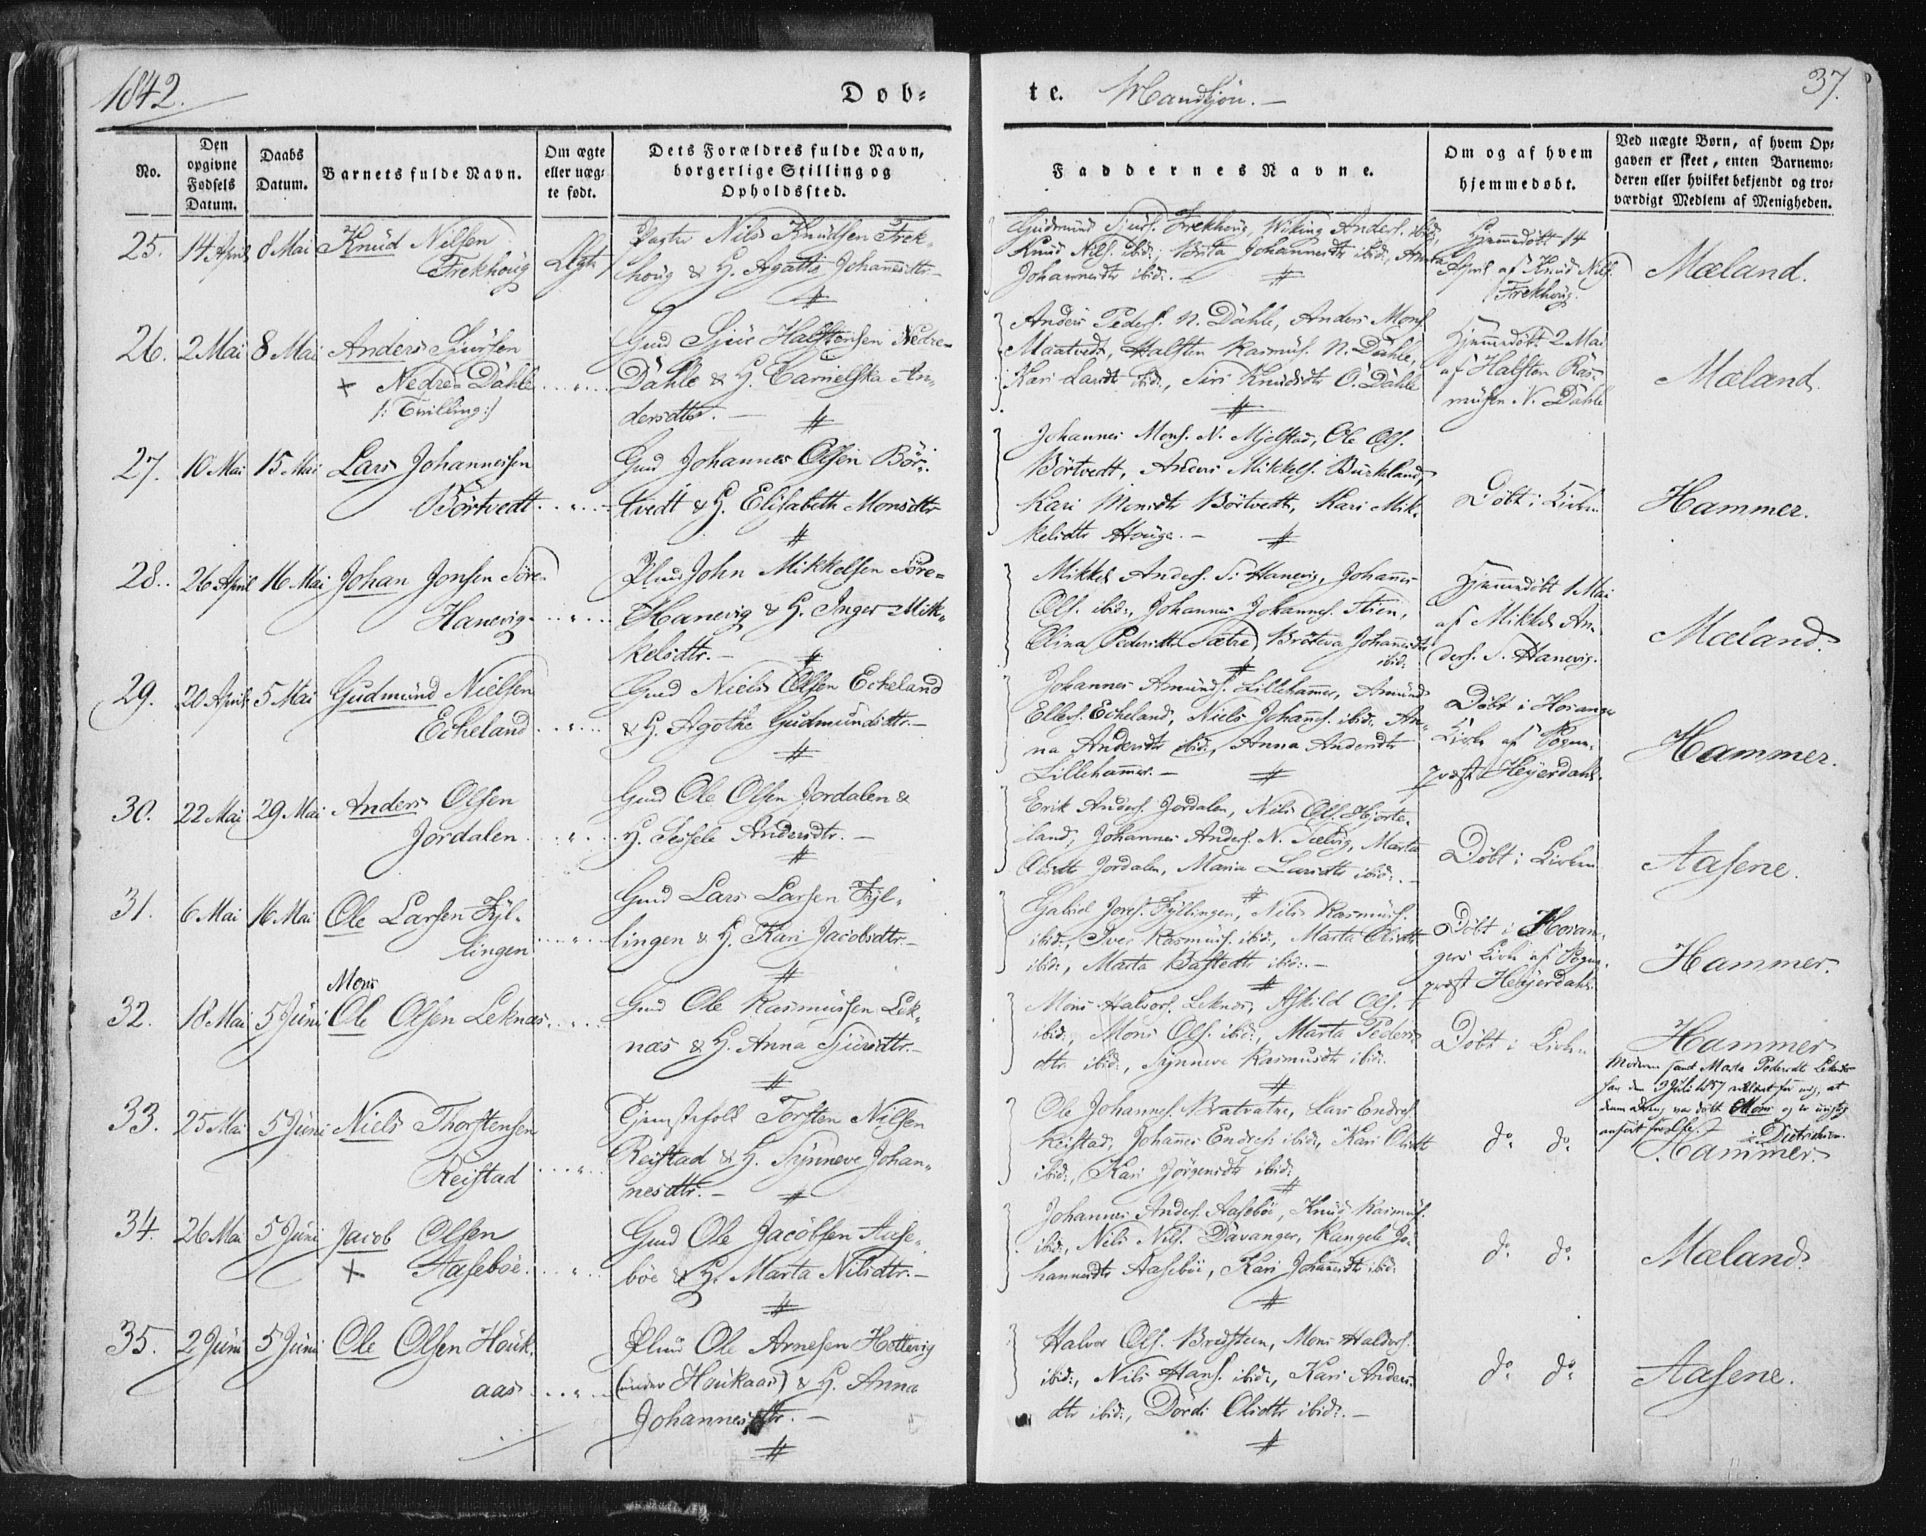 1842.
Døb-
te. Mandkjøn.
37.
No.
Den opgivne Fødsels Datum.
Daabs Datum.
Barnets fulde Navn.
Om ægte eller uægte født.
Dets Forældres fulde Navn, borgerlige Stilling og Opholdssted.
Faddernes Navne.
Om og af hvem hjemmedøbt.
Ved uægte Børn, af hvem Opgaven er skeet, enten Barnemoderen eller hvilket bekjendt og troværdigt Medlem af Menigheden.
25. 14 April 8 Mai Knud Nilsen
Frekhoug Ægte
Nils Knudsen Frek-
houg & H. Agatha Johannesdtr
Gudmund Sjurs. Frekhoug, Wiking Anders. ibid,
Knud Nils. ibid:, Brita Johannesdtr ibid:, Anna
Johannesdtr ibid:. -
Hjemmedøbt 14
April af Knud Nils.
Frekhoug.
Mæland.
26. 2 Mai 8 Mai Anders Sjursen
+ Nedre Dahle . . „ . .
/: Tvilling :/
Gmd Sjur Halstensen Nedre-
Dahle & H. Carnelska An-
dersdtr. -
Anders Peders. N. Dahle, Anders Mons.
Maatvedt, Halsten Rasmus. N. Dahle,
Kari Larsdtr ibid:, Siri Knudsdtr Ø. Dahle
Hjemmedøbt 2 Mai
af Halsten Ras-
musen N. Dahle
Mæland.
27. 10 Mai 15 Mai Lars Johannessen
Börtvedt . . „ . .
Gmd Johannes Olsen Bör-
tvedt & H. Elisabeth Monsdtr
Johannes Mons. N. Mjelstad, Ole Ols.
Börtvedt, Anders Mikkels. Birkeland,
Kari Monsdtr Börtvedt, Kari Mik-
kelsdtr Houge. -
Döbt i Kirken
Hammer.
28. 26 April 16 Mai Johan Jonsen Söre-
Hanevig . . „ . .
Plmd John Mikkelsen Söre-
Hanevig & H. Inger Mik-
kelsdtr. -
Mikkel Anders. S. Hanevig, Johannes
Ols. ibid:, Johannes Johannes. Stien,
Olina Pedersdtr Sætre, Johannesdtr
ibid:
Hjemmedöbt 1 Mai
af Mikkel An-
ders. S. Hanevig.
Mæland.
29. 20 April 5 Mai Gudmund Nielsen
Eckeland . . „ . .
Gmd Niels Olsen Eckeland
& H. Agothe Gudmundsdtr. -
Johannes Amunds. Lillehammer, Amund
Ellers. Eckeland, Niels Johannes. ibid: An-
na Andersdtr ibid:, Anna Andersdtr
Lillehammer. -
Döbt i Hosanger
Kirke af Sogne-
præst Heyerdahl.
Hammer.
30. 22 Mai 29 Mai Anders Olsen
Jordalen . . „ . .
Gmd Ole Olsen Jordalen &
H. Sessele Andersdtr. -
Erik Anders. Jordalen, Nils Ols. Hjorte-
land, Johannes Anders. N. Tælvig, Marta
Olsdtr Jordalen, Maria Larsdtr ibid:. -
Döbt i Kirken
Aasene.
31. 6 Mai 16 Mai Ole Larsen Fyl-
lingen . . „ . .
Gmd Lars Larsen Fyl-
lingen & H. Kari Jacobsdtr. -
Gabriel Fyllingen, Nils Rasmus.
ibid:, Iver Rasmus. ibid:, Marta Olsdtr
ibid:, Marta ibid:. -
Döbt i Hosan-
gers Kirke af Sogne-
præst Heyerdahl
Hammer.
Mons
32. 18 Mai 5 Juni Ole Olsen Leknæs . . . .
Gmd Ole Rasmussen Lek-
næs & H. Anna Sjursdtr. -
Mons Haldors. Leknæs, Askild Ols.
ibid:, Mons Ols. ibid:, Marta Peders-
dtr ibid:, Synneve Rasmusdtr ibid:.
Döbt i Kirken
Hammer
Moderen samt Marta Pedersdtr Leknæs
har den 9 Juli 1857 erklæret for mig, at
denne Dreng var döbt Mons og er urigtig
anfört
Dietrichson.
33. 25 Mai 5 Juni Niels Thorstensen
Reistad . . „ . .
Tjenstefolk Torsten Nilsen
Reistad & H. Synneve Johan-
nesdtr. -
Ole Johannes. Bratvatne, Lars Endres.
Reistad, Johannes Endres. ibid:, Kari Olsdtr
ibid:, Kari Jörgensdtr ibid:
do do
Hammer.
34. 26 Mai 5 Juni Jacob Olsen
+ Aaseböe . . „ . .
Gmd Ole Jacobsen Aase-
böe & H. Marta Nilsdtr. -
Johannes Anders. Aaseböe, Knud Rasmus.
ibid:, Nils Nils. Davanger, Rangele Jo-
hannesdtr Aaseböe, Kari Johannesdtr ibid:
do do
Mæland.
35. 2 Juni 5 Juni Ole Olsen Houk-
aas . . „ . .
Plmd Ole Arnesen Hottevig
(under Houkaas) & H. Anna
Johannesdtr. -
Halvor Ols. Bredsteen, Mons Haldors.
ibid:, Nils Hans. ibid:, Kari Anders-
dtr ibid:, Dordi Olsdtr ibid:. -
do do
Aasene.